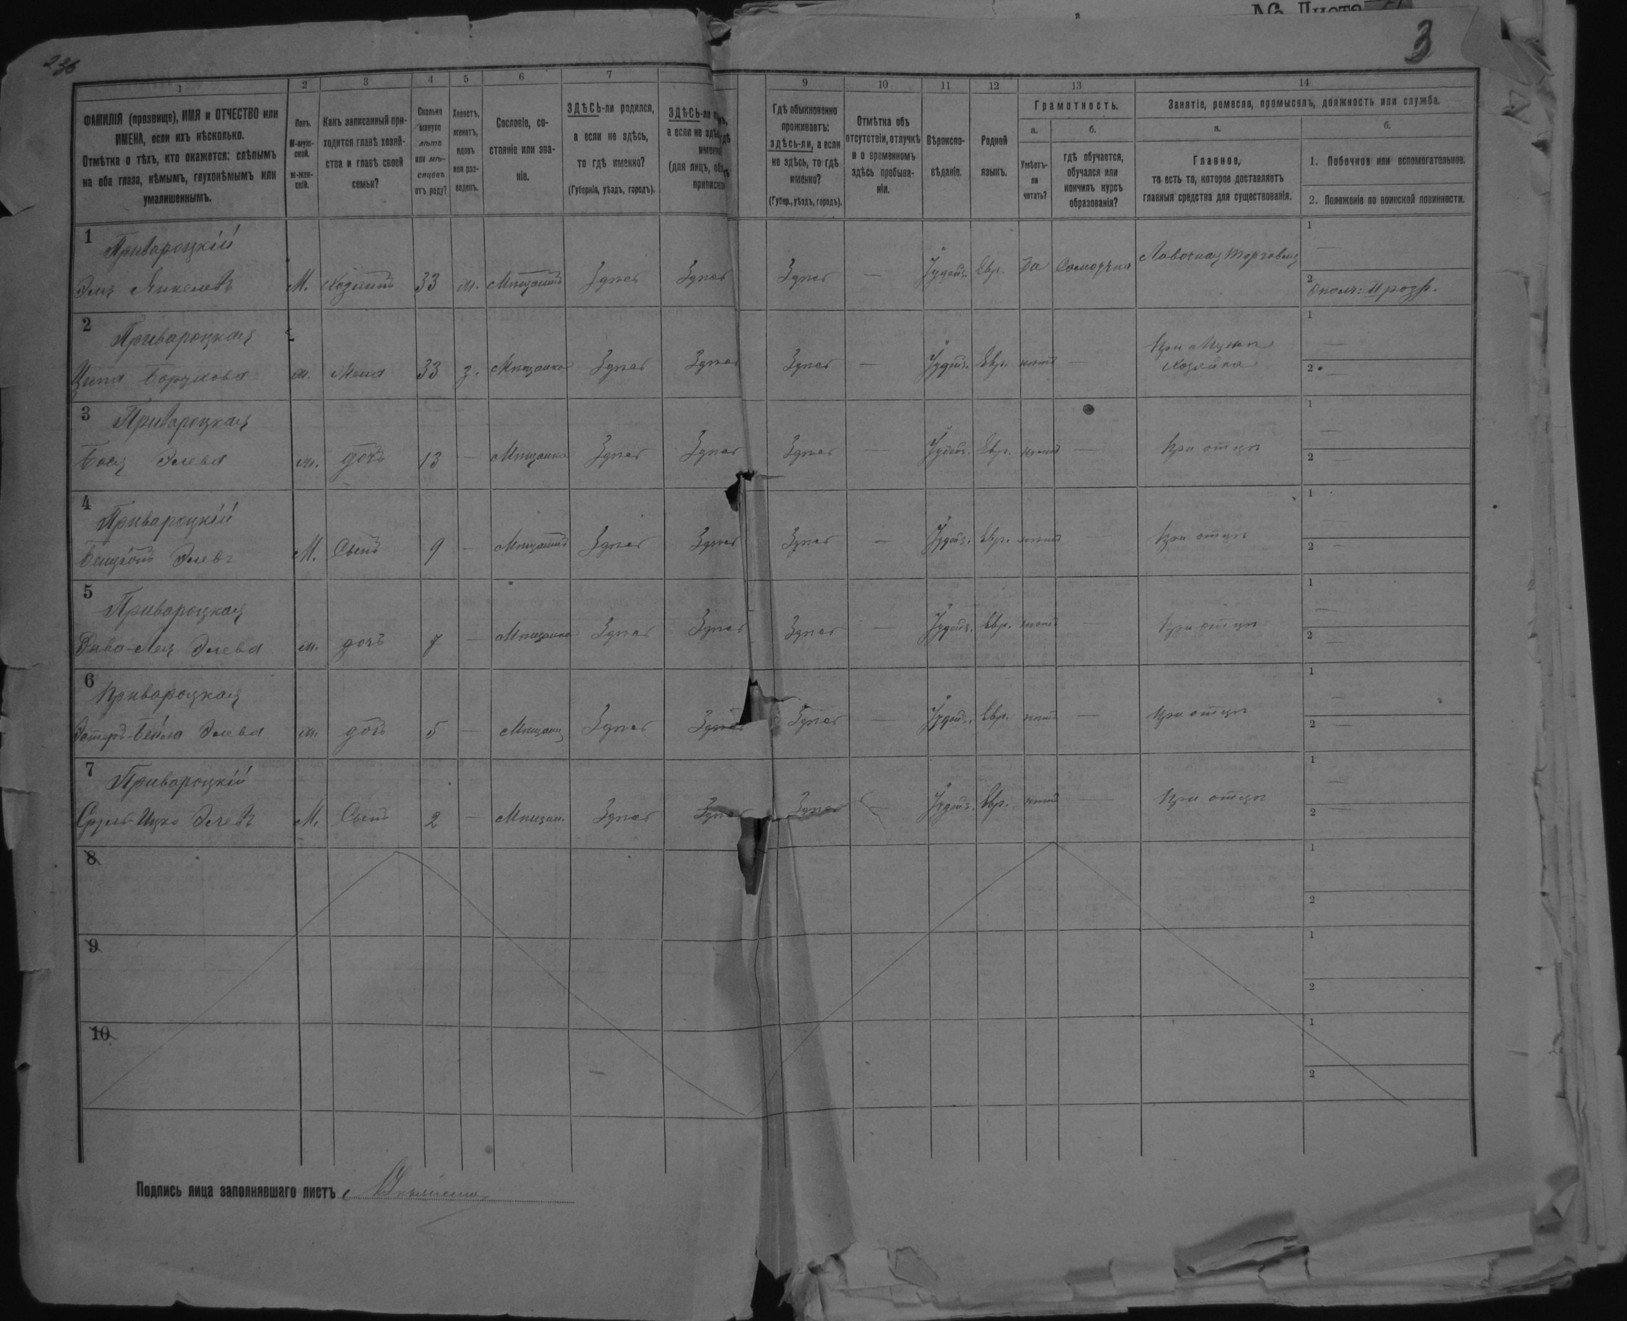 236
№ Листа
3
1
2
3
4
5
6
7
9
10
11
12
13
14
ФАМИЛІЯ (прозвище), ИМЯ и ОТЧЕСТВО или
ИМЕНА, если ихъ нѣсколько.
Отмѣтка о тѣхъ, кто окажется: слѣпымъ
на оба глаза, нѣмымъ, глухонѣмымъ или
умалишеннымъ.
Полъ.
М-муж-
ской.
ж-жен-
скій.
Какъ записанный при-
ходится главѣ хозяй-
ства и главѣ своей
семьи?
Сколько
минуло
лѣтъ
или мѣ-
сяцевъ
отъ роду?
Холостъ,
женатъ,
вдовъ
или раз-
веденъ.
Сословіе, со-
стояніе или зва-
ніе.
ЗДѢСЬ-ли родился,
а если не здѣсь,
то гдѣ именно?
(Губернія, уѣздъ, городъ).
ЗДѢСЬ-ли
а если не здѣсь
(для лицъ,
Гдѣ обыкновенно
проживаетъ:
здѣсь-ли, а если
не здѣсь, то гдѣ
именно?
(Губер., уѣздъ, городъ).
Отмѣтка объ
отсутствіи, отлучкѣ
и о временномъ
здѣсь пребыва-
ніи.
Вѣроиспо-
вѣданіе.
Родной
языкъ.
Грамотность.
а.
б.
Умѣетъ-
ли
читать?
гдѣ обучается,
обучался или
кончилъ курсъ
образованія?
Занятіе, ремесло, промыселъ, должность или служба.
а.
б.
Главное,
то есть то, которое доставляетъ
главныя средства для существованія.
1. Побочное или вспомогательное.
2. Положеніе по воинской повинности.
1
Привароцкій
Эля Янкелевъ М. Хозяинъ 33 ж. Мѣщанинъ Здѣсь Здѣсь Здѣсь — Іудейс. Евр. Да Лавочная торговля
1 —
2
2
Привароцкая
Ципа Борухова ж. Жена 33 з. Мѣщанка Здѣсь Здѣсь Здѣсь — Іудейс. Евр. нѣтъ — При мужѣ
хозяйка
1 —
2
3
Привароцкая
Элева ж. дочь 13 — Мѣщанка Здѣсь Здѣсь Здѣсь — Іудейс. Евр. нѣтъ При отцѣ
1 —
2 —
4
Привароцкій
Элевъ М. Сынъ 9 — Мѣщанинъ Здѣсь Здѣсь Здѣсь — Іудейс. Евр. нѣтъ — При отцѣ
1 —
2 —
5
Привароцкая
Элева ж. дочь 7 — Мѣщанка Здѣсь Здѣсь Здѣсь — Іудейс. Евр. нѣтъ — При отцѣ
1 —
2 —
6
Привароцкая
Эстеръ-Бейла Элева ж. дочь 5 — Мѣщан. Здѣсь Здѣсь Здѣсь — Іудейс. Евр. нѣтъ — При отцѣ
1 —
2 —
7
Привароцкій
Сруль-Ицко Элевъ М. Сынъ 2 — Мѣщан. Здѣсь Здѣсь Здѣсь — Іудейс. Евр. нѣтъ — При отцѣ
1 —
2 —
8
1
2
9
1
2
10
1
2
Подпись лица заполнявшаго листъ